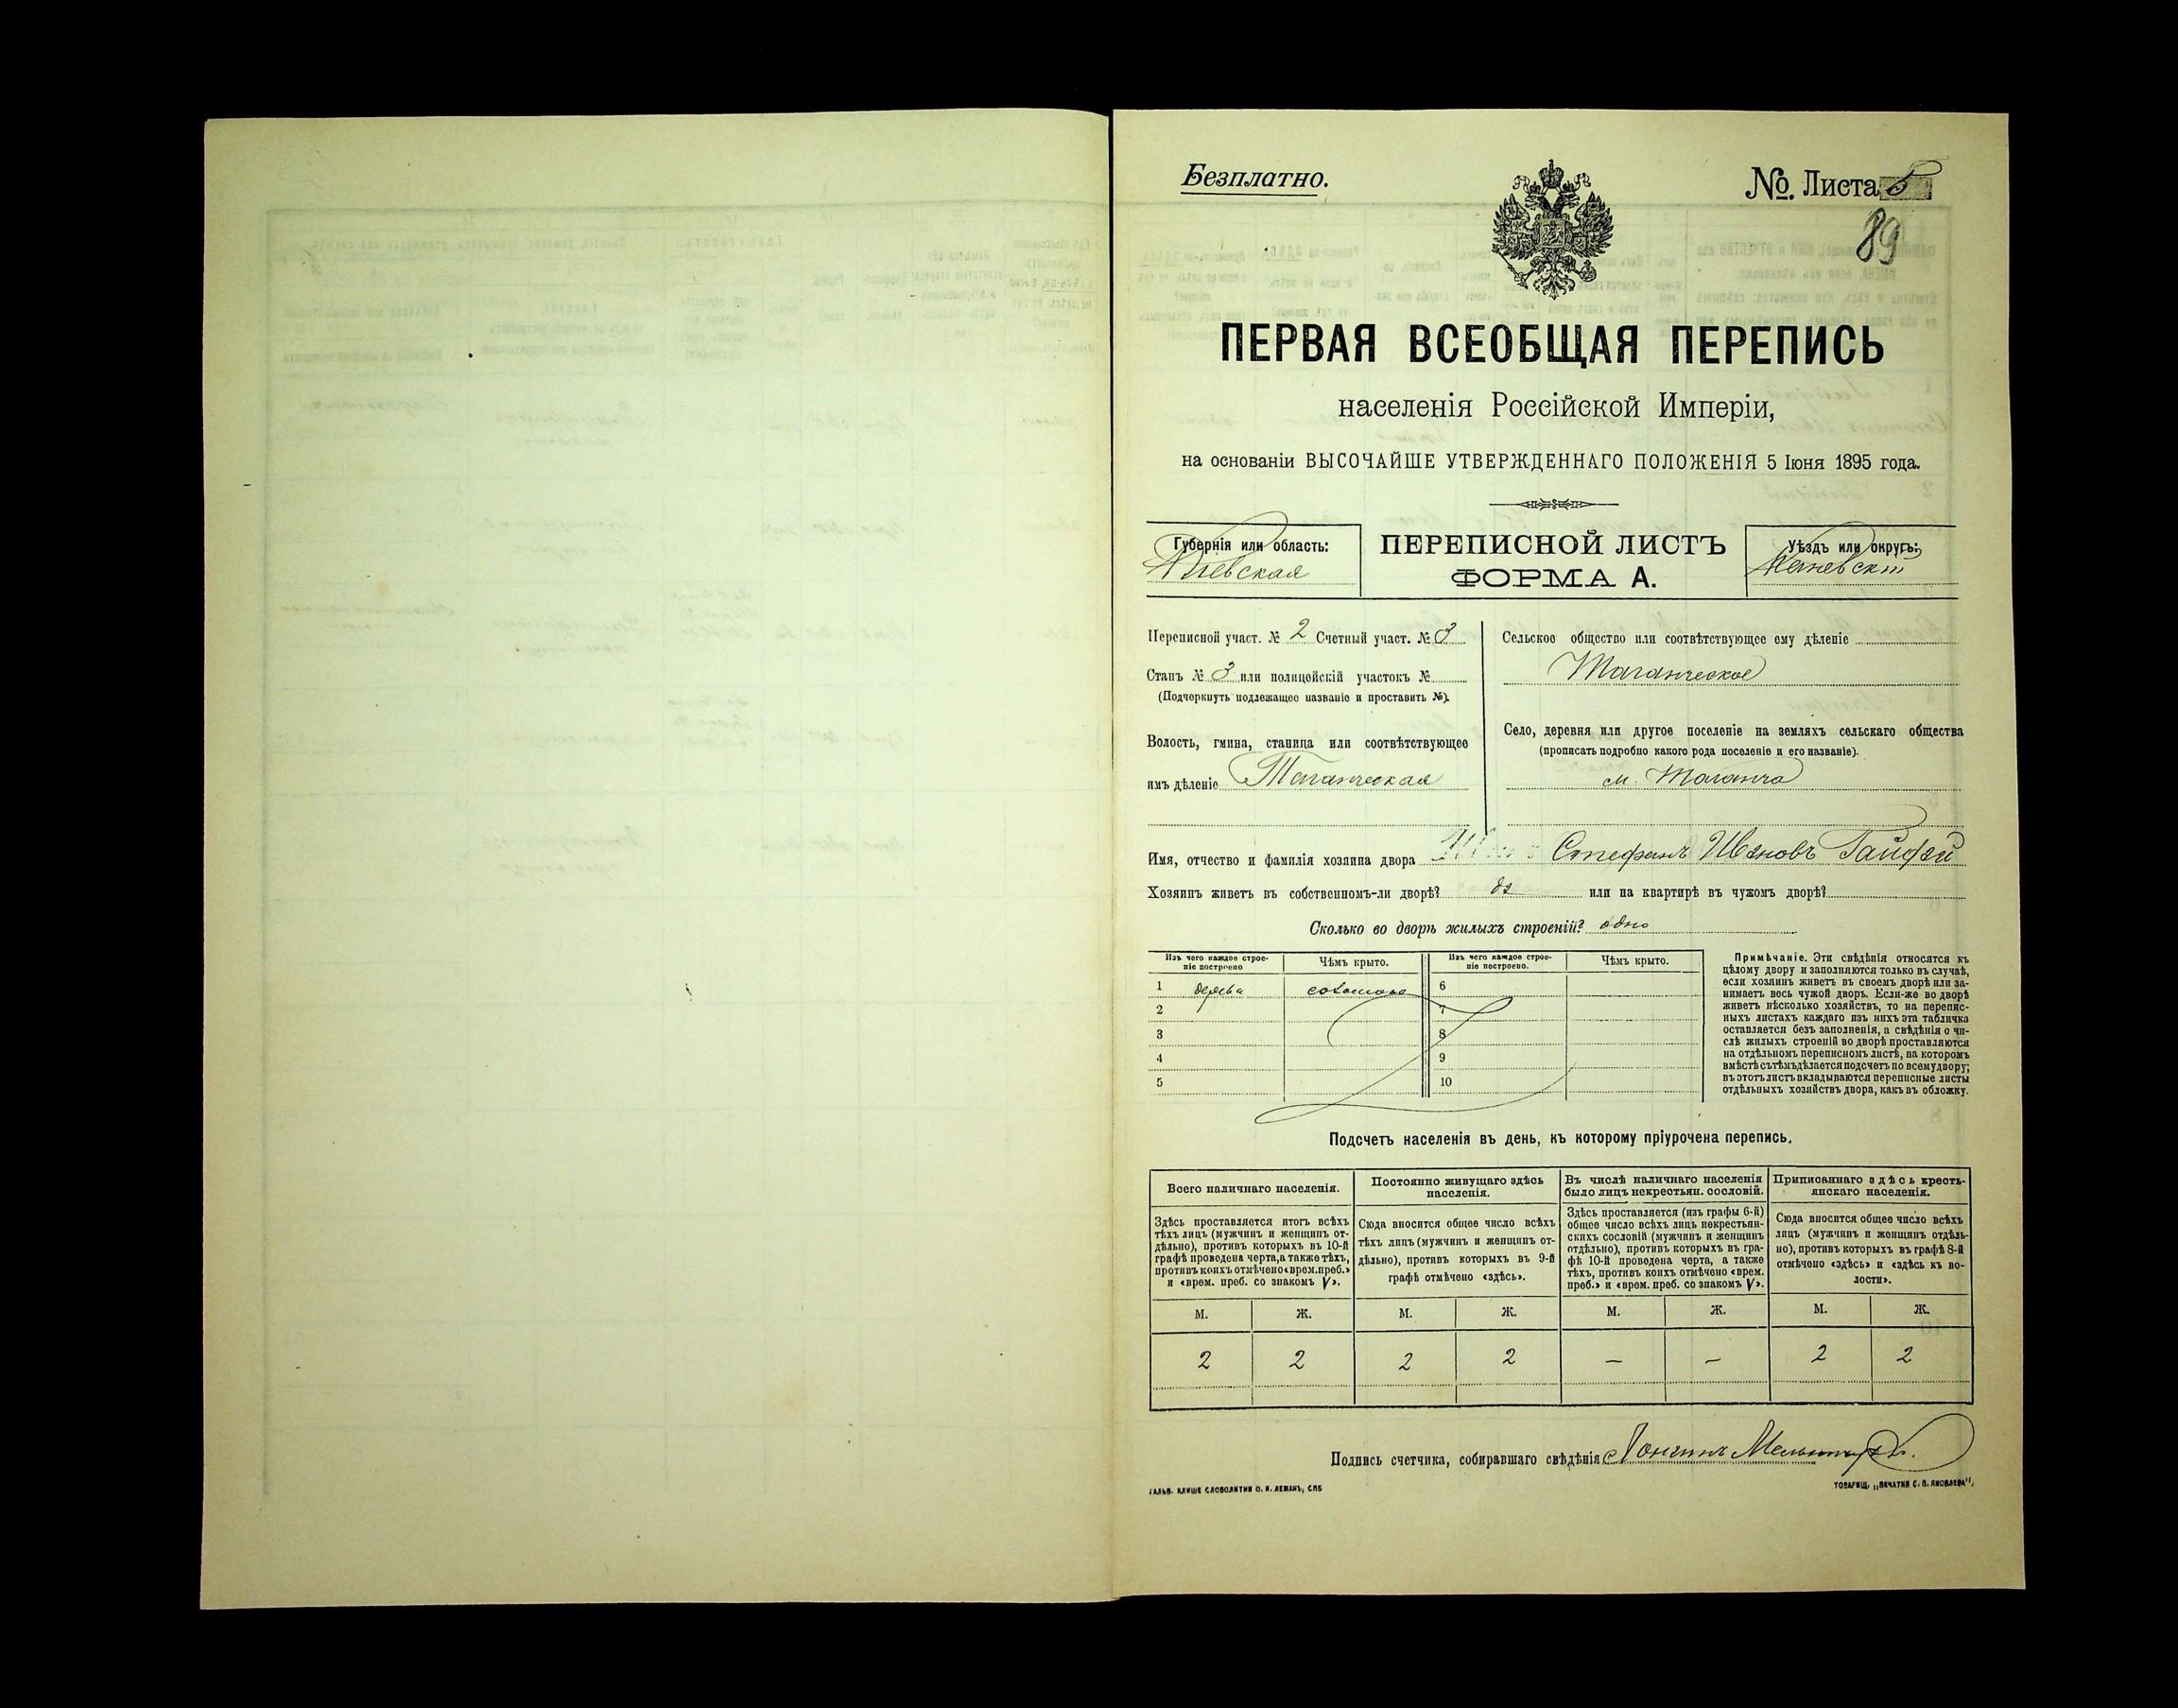 Безплатно.
№. Листа 5
89
ПЕРВАЯ ВСЕОБЩАЯ ПЕРЕПИСЬ
населенія Россійской Имперіи,
на основаніи ВЫСОЧАЙШЕ УТВЕРЖДЕННАГО ПОЛОЖЕНІЯ 5 Іюня 1895 года.
Губернія или область:
Кіевская
ПЕРЕПИСНОЙ ЛИСТЪ
ФОРМА А.
Уѣздъ или округъ:
Каневскій
Переписной участ. № 2 Счетный участ. № 3
Станъ № 3 или полицейскій участокъ №
(Подчеркнуть подлежащее названіе и проставить №).
Волость, гмина, станица или соотвѣтствующее
имъ дѣленіе Таганческая
Сельское общество или соотвѣтствующее ему дѣленіе
Таганческое
Село, деревня или другое поселеніе на земляхъ сельскаго общества
(прописать подробно какого рода поселеніе и его названіе).
м. Таганча
Имя, отчество и фамилія хозяина двора Стефанъ Ивановъ Гайдай
Хозяинъ живетъ въ собственномъ-ли дворѣ? да или на квартирѣ въ чужомъ дворѣ?
Сколько во дворѣ жилыхъ строеній? одно
Изъ чего каждое строе-
ніе построено
Чѣмъ крыто.
Изъ чего каждое строе-
ніе построено.
Чѣмъ крыто.
1 дерева соломою 6
2 7
3 8
4 9
5 10
Примѣчаніе. Эти свѣдѣнія относятся къ
цѣлому двору и заполняются только въ случаѣ,
если хозяинъ живетъ въ своемъ дворѣ или за-
нимаетъ весь чужой дворъ. Если-же во дворѣ
живетъ нѣсколько хозяйствъ, то на перепис-
ныхъ листахъ каждаго изъ нихъ эта табличка
оставляется безъ заполненія, а свѣдѣнія о чи-
слѣ жилыхъ строеній во дворѣ проставляются
на отдѣльномъ переписномъ листѣ, на которомъ
вмѣстѣ съ тѣмъ дѣлается подсчетъ по всему двору;
въ этотъ листъ вкладываются переписные листы
отдѣльныхъ хозяйствъ двора, какъ въ обложку.
Подсчетъ населенія въ день, къ которому пріурочена перепись.
Всего наличнаго населенія.
Постоянно живущаго здѣсь
населенія.
Въ числѣ наличнаго населенія
было лицъ некрестьян. сословій.
Приписаннаго здѣсь кресть-
янскаго населенія.
Здѣсь проставляется итогъ всѣхъ
тѣхъ лицъ (мужчинъ и женщинъ от-
дѣльно), противъ которыхъ въ 10-й
графѣ проведена черта, а также тѣхъ,
противъ коихъ отмѣчено «врем. преб.»
и «врем. преб. со знакомъ V».
Сюда вносится общее число всѣхъ
тѣхъ лицъ (мужчинъ и женщинъ от-
дѣльно), противъ которыхъ въ 9-й
графѣ отмѣчено «здѣсь».
Здѣсь проставляется (изъ графы 6-й)
общее число всѣхъ лицъ некрестьян-
скихъ сословій (мужчинъ и женщинъ
отдѣльно), противъ которыхъ въ гра-
фѣ 10-й проведена черта, а также
тѣхъ, противъ коихъ отмѣчено «врем.
преб.» и «врем. преб. со знакомъ V».
Сюда вносится общее число всѣхъ
лицъ (мужчинъ и женщинъ отдѣль-
но), противъ которыхъ въ графѣ 8-й
отмѣчено «здѣсь» и «здѣсь къ во-
лости».
М. Ж. М. Ж. М. Ж. М. Ж.
2 2 2 2 — — 2 2
Подпись счетчика, собиравшаго свѣдѣнія Лонгинъ
ГАЛЬВ. КЛИШЕ СЛОВОЛИТНИ О. И. ЛЕМАНЪ, СПБ
ТОВАРИЩ. „ПЕЧАТНЯ С. П. ЯКОВЛЕВА“.